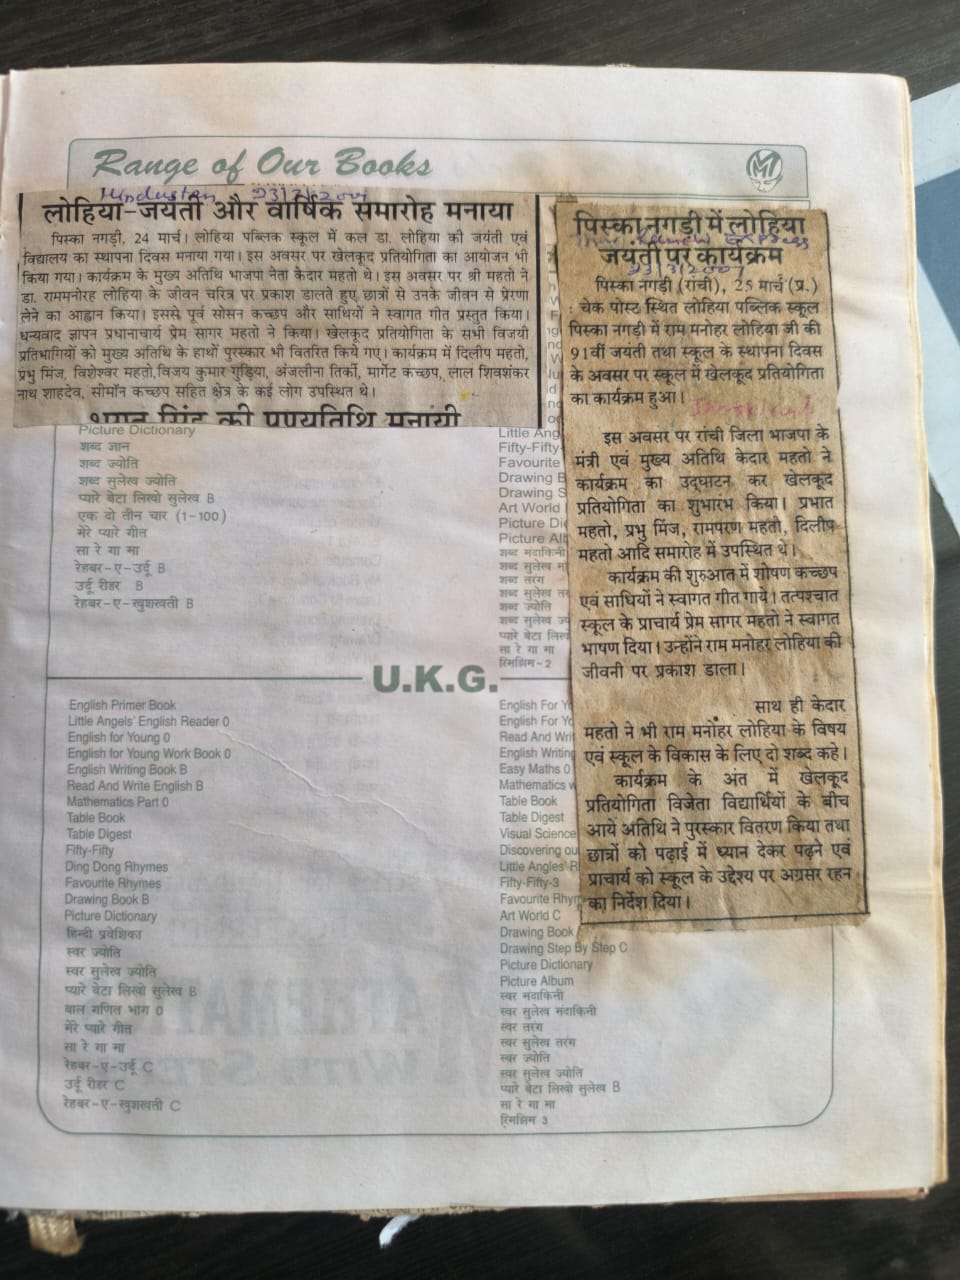 Range of Our Books
Hindustan 23/3/2001
लोहिया-जयंती और वार्षिक समारोह मनाया
पिस्का नगड़ी, 24 मार्च। लोहिया पब्लिक स्कूल में कल डा. लोहिया की जयंती एवं
विद्यालय का स्थापना दिवस मनाया गया। इस अवसर पर खेलकूद प्रतियोगिता का आयोजन भी
किया गया। कार्यक्रम के मुख्य अतिथि भाजपा नेता केदार महतो थे। इस अवसर पर श्री महतो ने
डा. राममनोरह लोहिया के जीवन चरित्र पर प्रकाश डालते हुए छात्रों से उनके जीवन से प्रेरणा
लेने का आह्वान किया। इससे पूर्व सोसन कच्छप और साथियों ने स्वागत गीत प्रस्तुत किया।
धन्यवाद ज्ञापन प्रधानाचार्य प्रेम सागर महतो ने किया। खेलकूद प्रतियोगिता के सभी विजयी
प्रतिभागियों को मुख्य अतिथि के हाथों पुरस्कार भी वितरित किये गए। कार्यक्रम में दिलीप महतो,
प्रभु मिंज, विशेश्वर महतो,विजय कुमार गुड़िया, अंजलीना तिर्की, मार्गेट कच्छप, लाल शिवशंकर
नाथ शाहदेव, सीमॉन कच्छप सहित क्षेत्र के कई लोग उपस्थित थे।
पिस्का नगड़ी में लोहिया
जयंती पर कार्यक्रम
Ranchi Express
23/3/2001
पिस्का नगड़ी (रांची), 25 मार्च (प्र.)
: चेक पोस्ट स्थित लोहिया पब्लिक स्कूल
पिस्का नगड़ी में राम मनोहर लोहिया जी की
91वीं जयंती तथा स्कूल के स्थापना दिवस
के अवसर पर स्कूल में खेलकूद प्रतियोगिता
का कार्यक्रम हुआ।
Jharkhand
इस अवसर पर रांची जिला भाजपा के
मंत्री एवं मुख्य अतिथि केदार महतो ने
कार्यक्रम का उद्घाटन कर खेलकूद
प्रतियोगिता का शुभारंभ किया। प्रभात
महतो, प्रभु मिंज, रामपरण महतो, दिलीप
महतो आदि समारोह में उपस्थित थे।
कार्यक्रम की शुरुआत में शोषण कच्छप
एवं साथियों ने स्वागत गीत गाये। तत्पश्चात
स्कूल के प्राचार्य प्रेम सागर महतो ने स्वागत
भाषण दिया। उन्होंने राम मनोहर लोहिया की
जीवनी पर प्रकाश डाला।
साथ ही केदार
महतो ने भी राम मनोहर लोहिया के विषय
एवं स्कूल के विकास के लिए दो शब्द कहे।
कार्यक्रम के अंत में खेलकूद
प्रतियोगिता विजेता विद्यार्थियों के बीच
आये अतिथि ने पुरस्कार वितरण किया तथा
छात्रों को पढ़ाई में ध्यान देकर पढ़ने एवं
प्राचार्य को स्कूल के उद्देश्य पर अग्रसर रहन
का निर्देश दिया।
Picture Dictionary
शब्द ज्ञान
शब्द ज्योति
शब्द सुलेख ज्योति
प्यारे बेटा लिखो सुलेख B
एक दो तीन चार (1-100)
मेरे प्यारे गीत
सा रे गा मा
रेहबर-ए-उर्दू B
उर्दू रीडर B
रेहबर-ए-खुशखती B
Little Ang
Fifty-Fifty
Favourite
Drawing B
Drawing S
Art World
Picture Dic
Picture Alb
शब्द मंदाकिनी
शब्द सुलेख मं
शब्द तरंग
शब्द सुलेख तरं
शब्द ज्योति
शब्द सुलेख ज्य
प्यारे बेटा लिखो
सा रे गा मा
रिमझिम-2
U.K.G.
English Primer Book
Little Angels' English Reader 0
English for Young 0
English for Young Work Book 0
English Writing Book B
Read And Write English B
Mathematics Part 0
Table Book
Table Digest
Fifty-Fifty
Ding Dong Rhymes
Favourite Rhymes
Drawing Book B
Picture Dictionary
हिन्दी प्रवेशिका
स्वर ज्योति
स्वर सुलेख ज्योति
प्यारे बेटा लिखो सुलेख B
बाल गणित भाग 0
मेरे प्यारे गीत
सा रे गा मा
रेहबर-ए-उर्दू C
उर्दू रीडर C
रेहबर-ए-खुशखती C
English For Yo
English For Yo
Read And Writ
English Writing
Easy Maths 0
Mathematics w
Table Book
Table Digest
Visual Science
Discovering ou
Little Angles' R
Fifty-Fifty-3
Favourite Rhym
Art World C
Drawing Book
Drawing Step By Step C
Picture Dictionary
Picture Album
स्वर मंदाकिनी
स्वर सुलेख मंदाकिनी
स्वर तरंग
स्वर सुलेख तरंग
स्वर ज्योति
स्वर सुलेख ज्योति
प्यारे बेटा लिखो सुलेख B
सा रे गा मा
रिमझिम 3